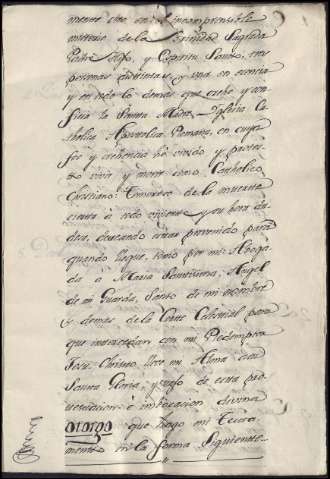 mente creo en el incomprensible
misterio de la Trinidad Sagrada
Padre, Hijo, y Espiritu Santo, tres
personas distintas, y una en esencia
y en todo lo demas que cree y con
fiesa la Santa Madre Yglesia Ca
tholica Apostolica Romana, en cuya
feè y crehencia he vivido y protes
to vivir y morir como Catholico
Christiano: Temeroso de la muerte
cierta à todo viviente y su hora du
dosa, deseando estar prevenido para
quando llegue, tomo por mi Aboga
da à Maria Santissima, Angel
de mi Guarda, Santo de mi nombre
y demas de la Corte Celestial para
que intercedan con mi Redemptor
Jesu-Christo lleve mi Alma à su
Santa Gloria, y vajo de esta pro
textacion è imbocacion divina
otorgo que hago mi Testa
mento en la forma Siguiente